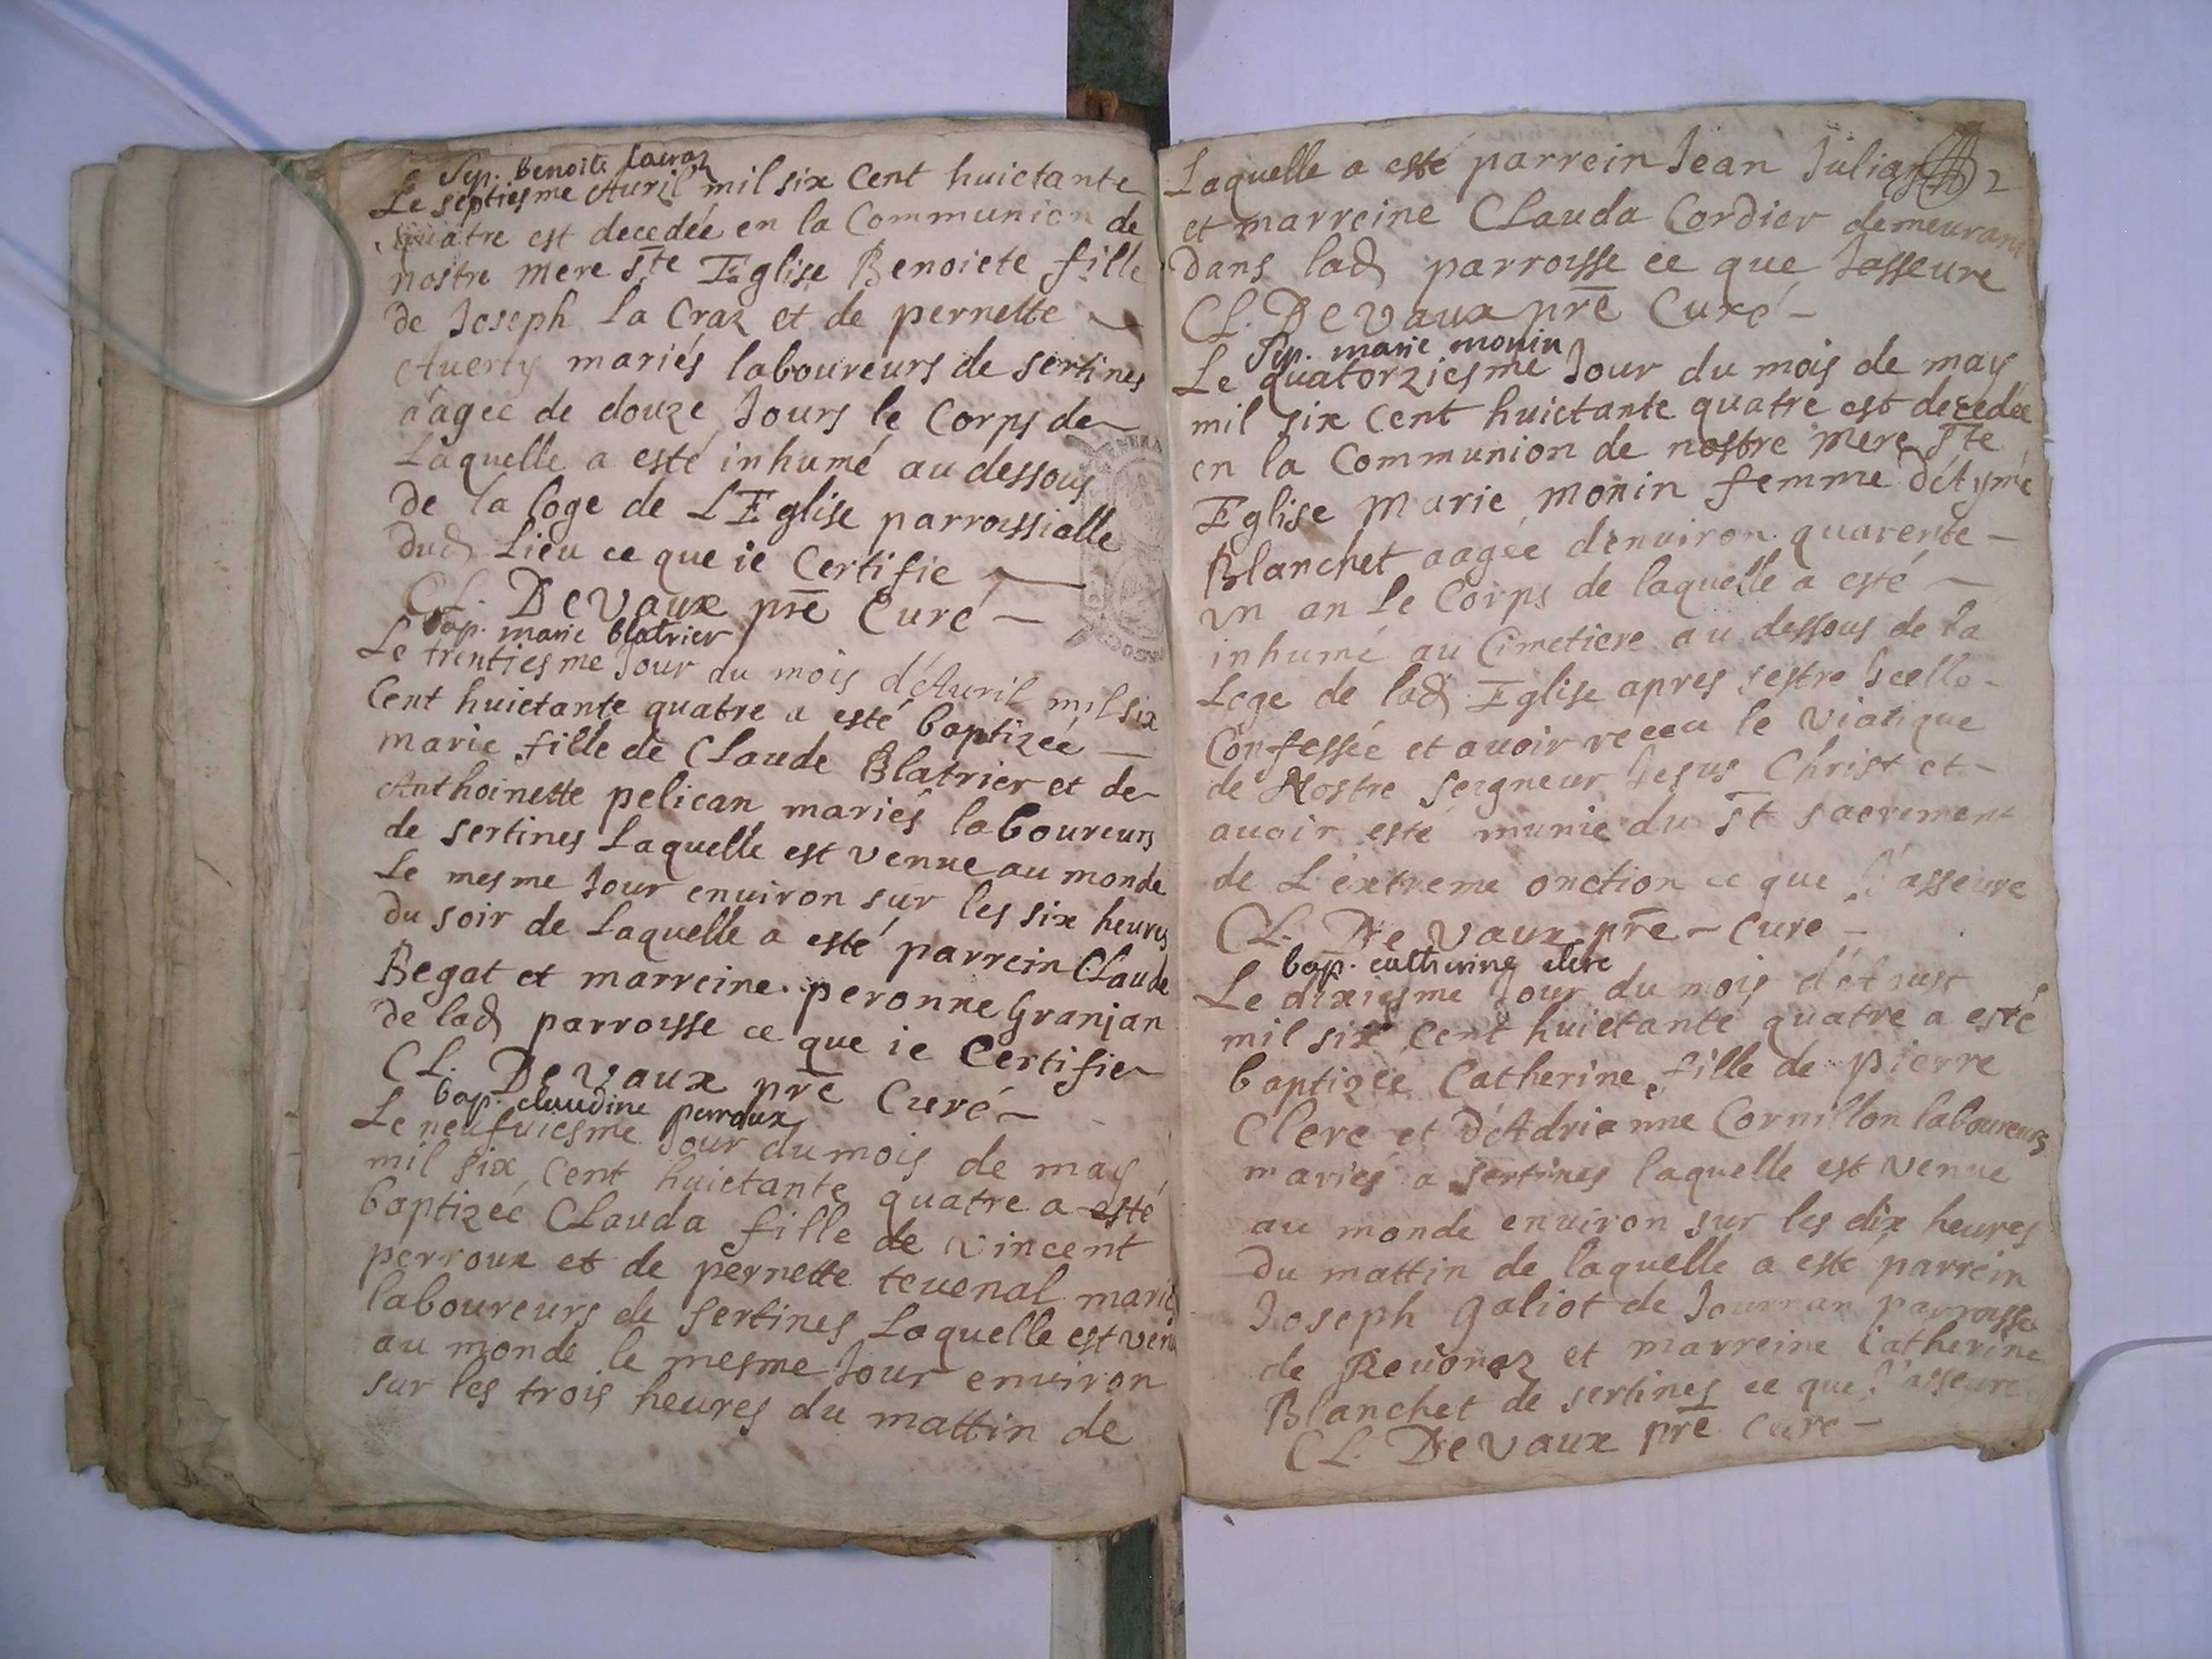 Sep. Benoite Lacraz
Le septiesme Auril mil six Cent huictante
quatre est decedée en la Communion de
nostre mere Ste Eglise Benoiete fille
de Joseph La Craz et de pernette
Auerty mariés laboureurs de sertines
aagee de douze Jours le Corps de
Laquelle a esté inhumé au dessous
de la loge de L'Eglise parroissialle
dud Lieu ce que ie Certifie
CL. DeVaux pre Curé
bap. marie blatrier
Le trentiesme Jour du mois d'Auril mil six
Cent huictante quatre a esté baptizée
marie fille de Claude Blatrier et de
Anthoinette pelican mariés laboureurs
de sertines Laquelle est venue au monde
Le mesme Jour enuiron sur les six heures
du soir de Laquelle a esté parrein Claude
Begat et marreine peronne Granjan
de lad parroisse ce que ie Certifie
CL. DeVaux pre Curé
bap. claudine perroux
Le neufuiesme Jour du mois de may
mil six Cent huictante quatre a esté
baptizeé Clauda fille de vincent
perroux et de pernette teuenal mariés
laboureurs de sertines Laquelle est venu
au monde le mesme Jour enuiron
sur les trois heures du mattin de
Laquelle a esté parrein Jean Julian 2
et marreine Clauda Cordier demeurans
dans lad parroisse ce que Jasseure
CL. DeVaux pre Curé
Sep. marie monin
Le quatorziesme Jour du mois de may
mil six Cent huictante quatre est decedée
en la Communion de nostre mere Ste
Eglise Marie Monin femme d'Aymé
Blanchet aagée denuiron quarente
un an Le Corps de laquelle a esté
inhumé au Cimetiere au dessous de la
Loge de lad Eglise apres sestre Icelle
Confessée et auoir receu le Viatique
de Nostre Seigneur Jesus Christ et
auoir esté munie du St sacrement
de L'éxtreme onction ce que J'asseure
CL. DeVaux pre Cure
bap. catherine clerc
Le dixiesme Jour du mois d'Aoust
mil six Cent huictante quatre a esté
baptizée Catherine fille de Pierre
Clerc et d'Adrianne Cornillon laboureurs
mariés a sertines laquelle est venue
au monde enuiron sur les dix heures
du mattin de laquelle a esté parrein
Joseph galiot de Journan parroisse
de Reuonaz et marreine Catherine
Blanchet de sertines ce que J'asseure
CL. DeVaux pre Cure